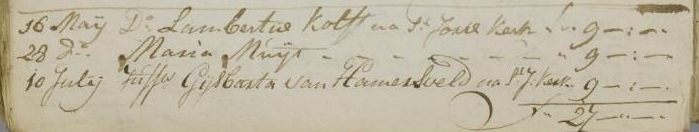 16 Maÿ Do Lambertus Kolff na St Joris Kerk f " 9 - : -
28 Do Maria Muijs - - - - - - " 9 - : -
10 July Juffw Gijsbarta van Hamersveld na St J: Kerk - 9 - : -
f - 27 - " -